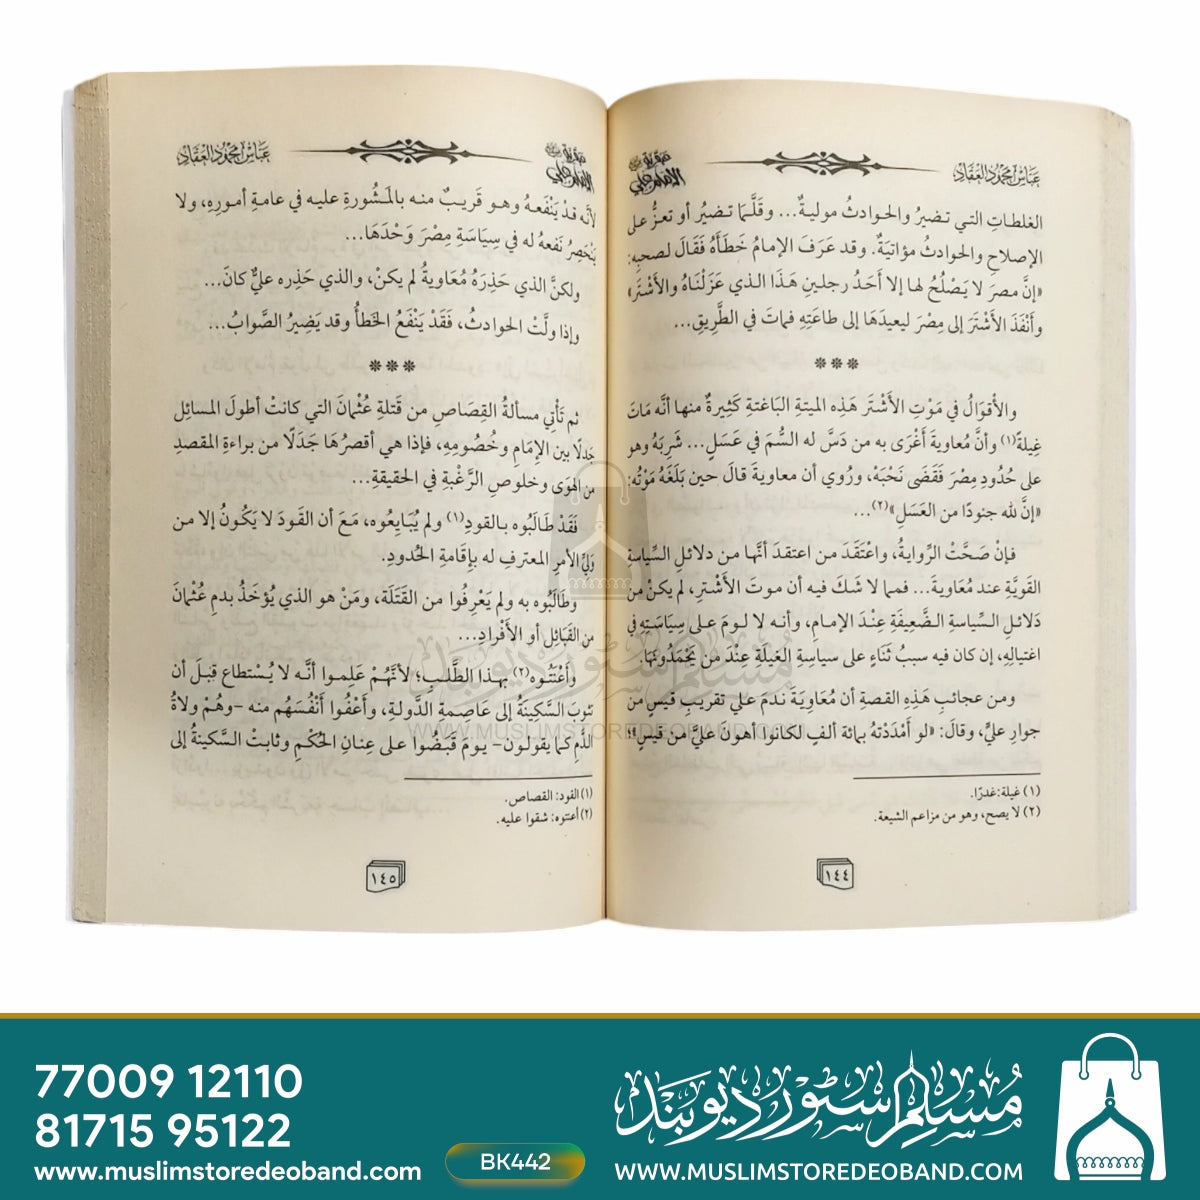 عباس محمود العقاد
عبقرية الإمام علي
الغلطاتِ التي تضيرُ والحوادثُ موليةٌ... وقَلَّمَا تضيرُ أو تعزُّ على
الإصلاحِ والحوادثُ مؤاتيَةٌ. وقد عَرَفَ الإمامُ خَطَأَهُ فَقَالَ لصحبِهِ:
«إنَّ مصرَ لا يَصْلُحُ لها إلا أَحَدُ رجلينِ هَذَا الذي عَزَلْنَاهُ والأَشْتَرَ»
وأَنْفَذَ الأَشْتَرَ إلى مِصْرَ ليعيدَهَا إلى طاعَتِهِ فماتَ في الطَّرِيقِ...
***
والأقوَالُ في مَوْتِ الأَشْتَر هَذِه الميتةِ البَاغتةِ كَثِيرةٌ منها أنَّه مَاتَ
غِيلةً(١) وأنَّ مُعاويةَ أَغْرَى به من دَسَّ له السُّمَ في عَسَلٍ... شَرِبَهُ وهو
على حُدُودِ مِصْرَ فَقَضَى نَحْبَهُ، ورُوي أن معاويةَ قالَ حين بَلَغَهُ مَوْتُه:
«إنَّ لله جنودًا من العَسَلِ»(٢)...
فإنْ صَحَّتْ الرِّوايةُ، واعْتَقَدَ من اعتقدَ أنَّها من دلائلِ السِّياسةِ
القَويَّةِ عند مُعَاويةَ... فمما لا شَكَ فيه أن موتَ الأَشْترِ، لم يكنْ من
دَلائلِ السِّياسةِ الضَّعيفَةِ عِنْدَ الإمامِ، وأنه لا لومَ على سِيَاسَتِهِ في
اغتيالِهِ، إن كان فيه سببُ ثَنَاءٍ على سياسةِ الغيلَةِ عِنْدَ من يَحْمَدُونَهَا.
ومن عجائبِ هَذِهِ القصةِ أن مُعَاوِيَةَ نَدمَ علي تقريبِ قيسٍ من
جوارِ عليٍّ، وقالَ: «لو أَمْدَدْتُهُ بمائةِ ألفٍ لكانوا أهونَ عليَّ من قيسٍ»!
(١) غيلة: غدرًا.
(٢) لا يصح، وهو من مزاعم الشيعة.
١٤٤
عبقرية الإمام علي
عباس محمود العقاد
لأنَّه قدْ يَنْفَعهُ وهو قَريبٌ منه بالمَشُورةِ عليه في عامةِ أمورِهِ، ولا
يَنْحَصِرُ نَفعهُ له في سِيَاسَةِ مِصْرَ وَحْدَهَا...
ولكنَّ الذي حَذِرَهُ مُعَاويةُ لم يكنْ، والذي حَذِره عليٌّ كانَ...
وإذا ولَّتْ الحوادثُ، فَقَدْ يَنْفَعُ الخَطأُ وقد يَضِيرُ الصَّوابُ...
***
ثم تَأتِي مسألةُ القِصَاصِ من قَتلةِ عُثْمانَ التي كانتْ أطولَ المسائِل
جَدلًا بين الإمَامِ وخُصُومِهِ، فإذا هي أقصرُهَا جَدَلًا من براءةِ المقصدِ
من الهوَى وخلوصِ الرَّغْبةِ في الحقيقةِ...
فَقَدْ طَالَبُوه بالقودِ(١) ولم يُبَايِعُوه، مَعَ أن القَودَ لا يَكُونُ إلا من
وَليِّ الأمرِ المعترفِ له بإِقَامةِ الحُدودِ.
وطَالَبُوه به ولم يَعْرِفُوا من القَتَلَة، ومَنْ هو الذي يُؤخَذُ بدمِ عُثْمانَ
من القَبَائلِ أو الأَفْرادِ...
وأَعْنَتُوه(٢) بهذا الطَّلبِ؛ لأنَّهُمْ عَلِموا أنَّه لا يُسْتطاع قبلَ أن
تثوبَ السَّكينَةُ إلى عَاصِمةِ الدَّولةِ، وأَعْفُوا أَنْفُسَهُم منه -وهُمْ ولاةُ
الدَّمِ كما يقولون- يومَ قَبَضُوا على عِنانِ الحُكْمِ وثابتْ السَّكينةُ إلى
(١) القود: القصاص.
(٢) أعنتوه: شقوا عليه.
١٤٥
مسلم سٹور دیوبند
WWW.MUSLIMSTOREDEOBAND.COM
77009 12110
81715 95122
www.muslimstoredeoband.com
BK442
مسلم سٹور دیوبند
WWW.MUSLIMSTOREDEOBAND.COM